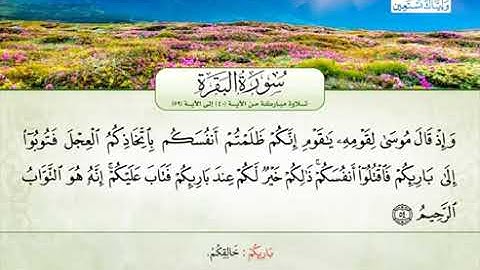 وإياك نستعين
سُورَةُ البَقَرَةِ
تلاوة مباركة من الآية (٤٠) إلى الآية (٥٩)
وَإِذْ قَالَ مُوسَىٰ لِقَوْمِهِۦ يَـٰقَوْمِ إِنَّكُمْ ظَلَمْتُمْ أَنفُسَكُم بِٱتِّخَاذِكُمُ ٱلْعِجْلَ فَتُوبُوٓا۟
إِلَىٰ بَارِئِكُمْ فَٱقْتُلُوٓا۟ أَنفُسَكُمْ ذَٰلِكُمْ خَيْرٌ لَّكُمْ عِندَ بَارِئِكُمْ فَتَابَ عَلَيْكُمْ ۚ إِنَّهُۥ هُوَ ٱلتَّوَّابُ
ٱلرَّحِيمُ ٥٤
بَارِئِكُمْ : خَالِقِكُمْ.